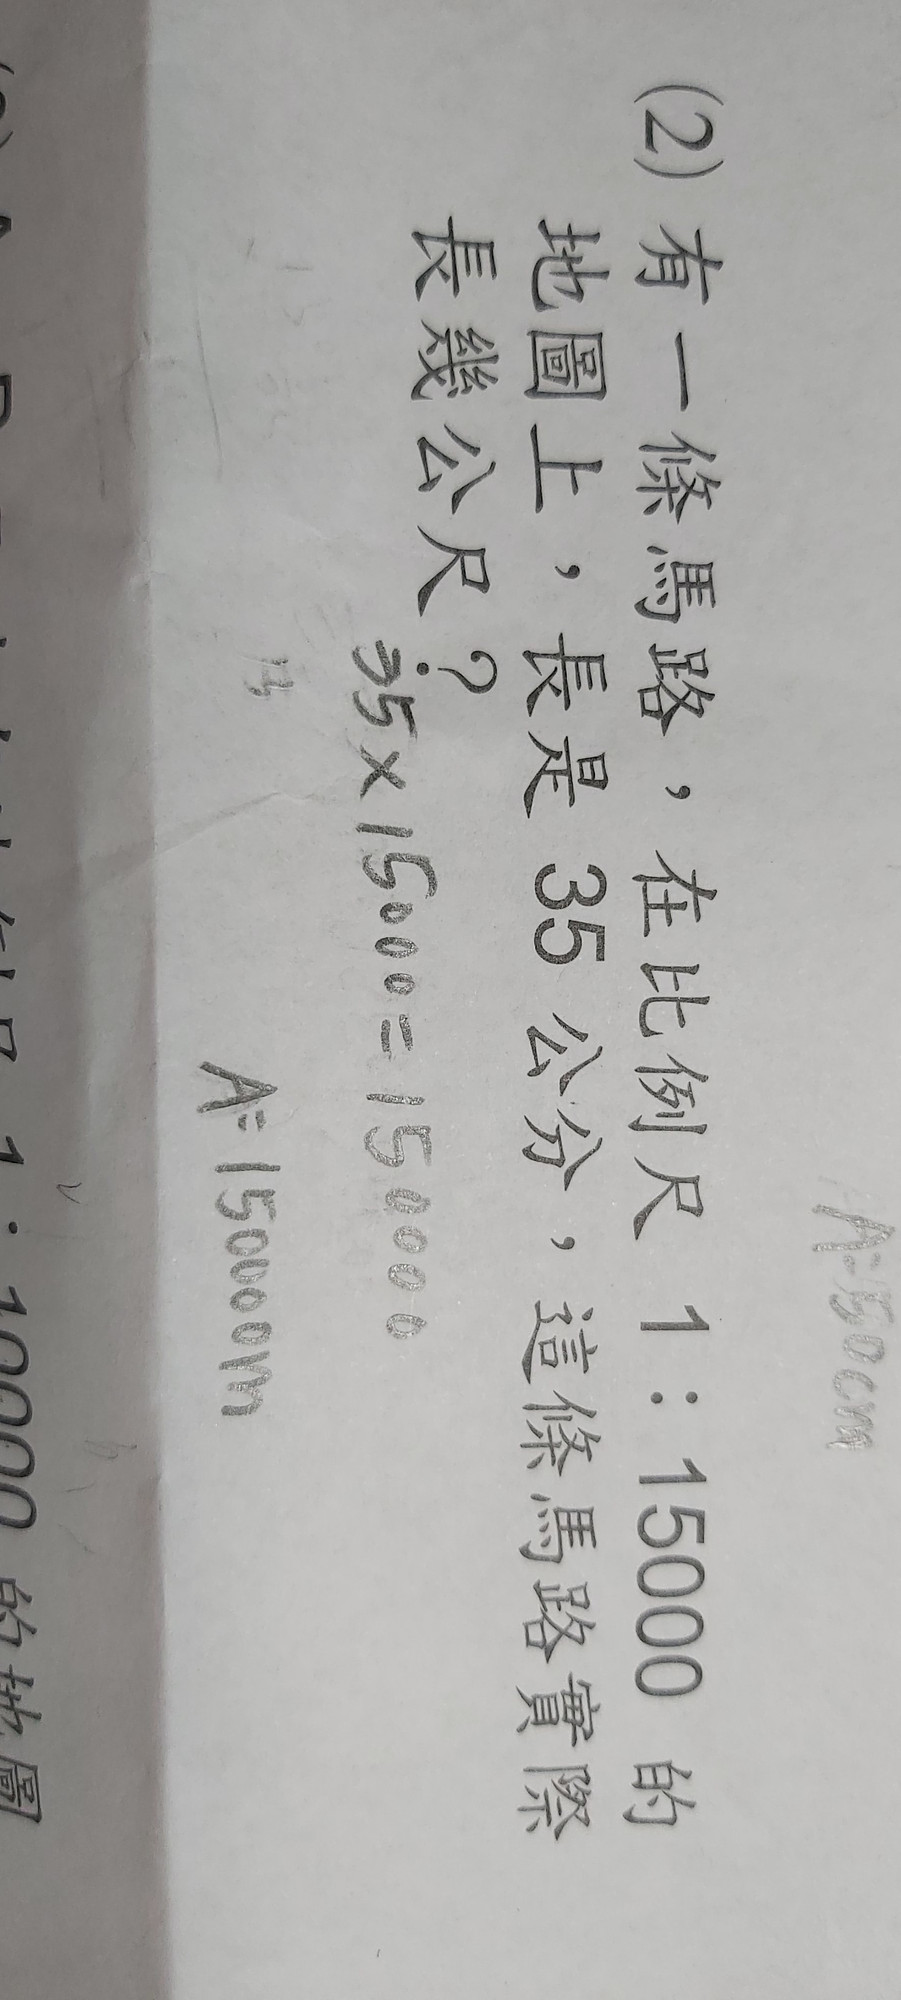 A:150cm
(2) 有一條馬路，在比例尺 1：15000 的
地圖上，長是 35 公分，這條馬路實際
長幾公尺？
35×15000=150000
A:15000m
1：10000 的地圖